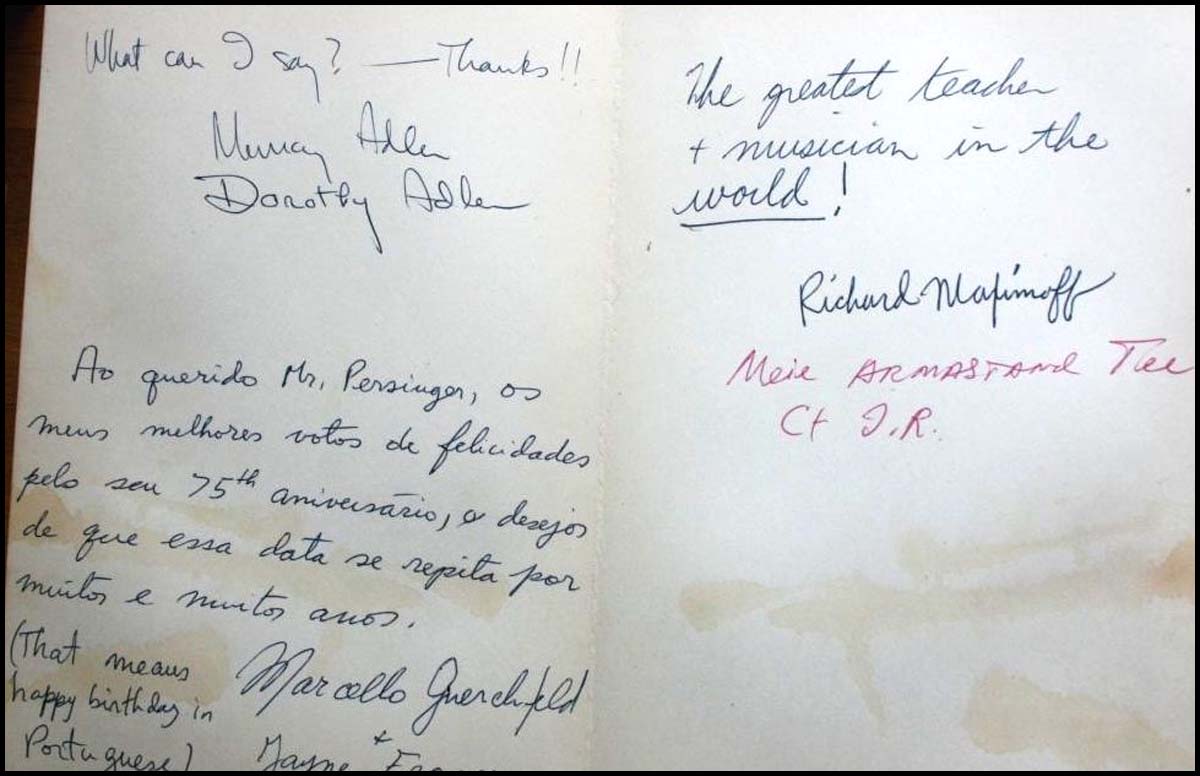 What can I say? — Thanks!!
Murray Adler
Dorothy Adler
Ao querido Mr. Persinger, os
meus melhores votos de felicidades
pelo seu 75th aniversário, e desejos
de que essa data se repita por
muitos e muitos anos.
(That means
happy birthday in
Portuguese)
Marcello Guerchfeld
+
Jayne
The greatest teacher
+ musician in the
world!
Richard Maximoff
Meie ARMASTAND
J.R.